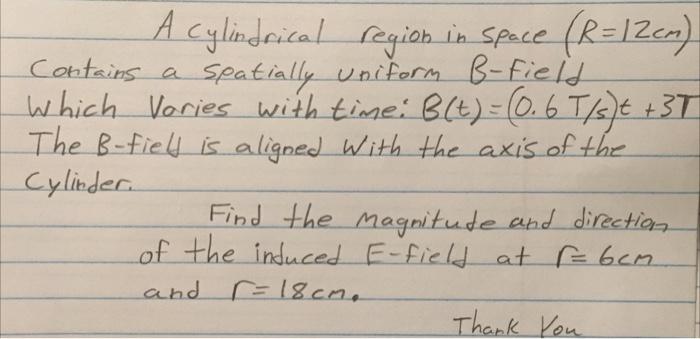 A cylindrical region in space (R=12cm)
Contains a spatially uniform B-field
Which Varies with time: B(t)=(0.6 T/s)t +3T
The B-field is aligned With the axis of the
Cylinder.
Find the magnitude and direction
of the induced E-field at r=6cm
and r=18cm.
Thank You